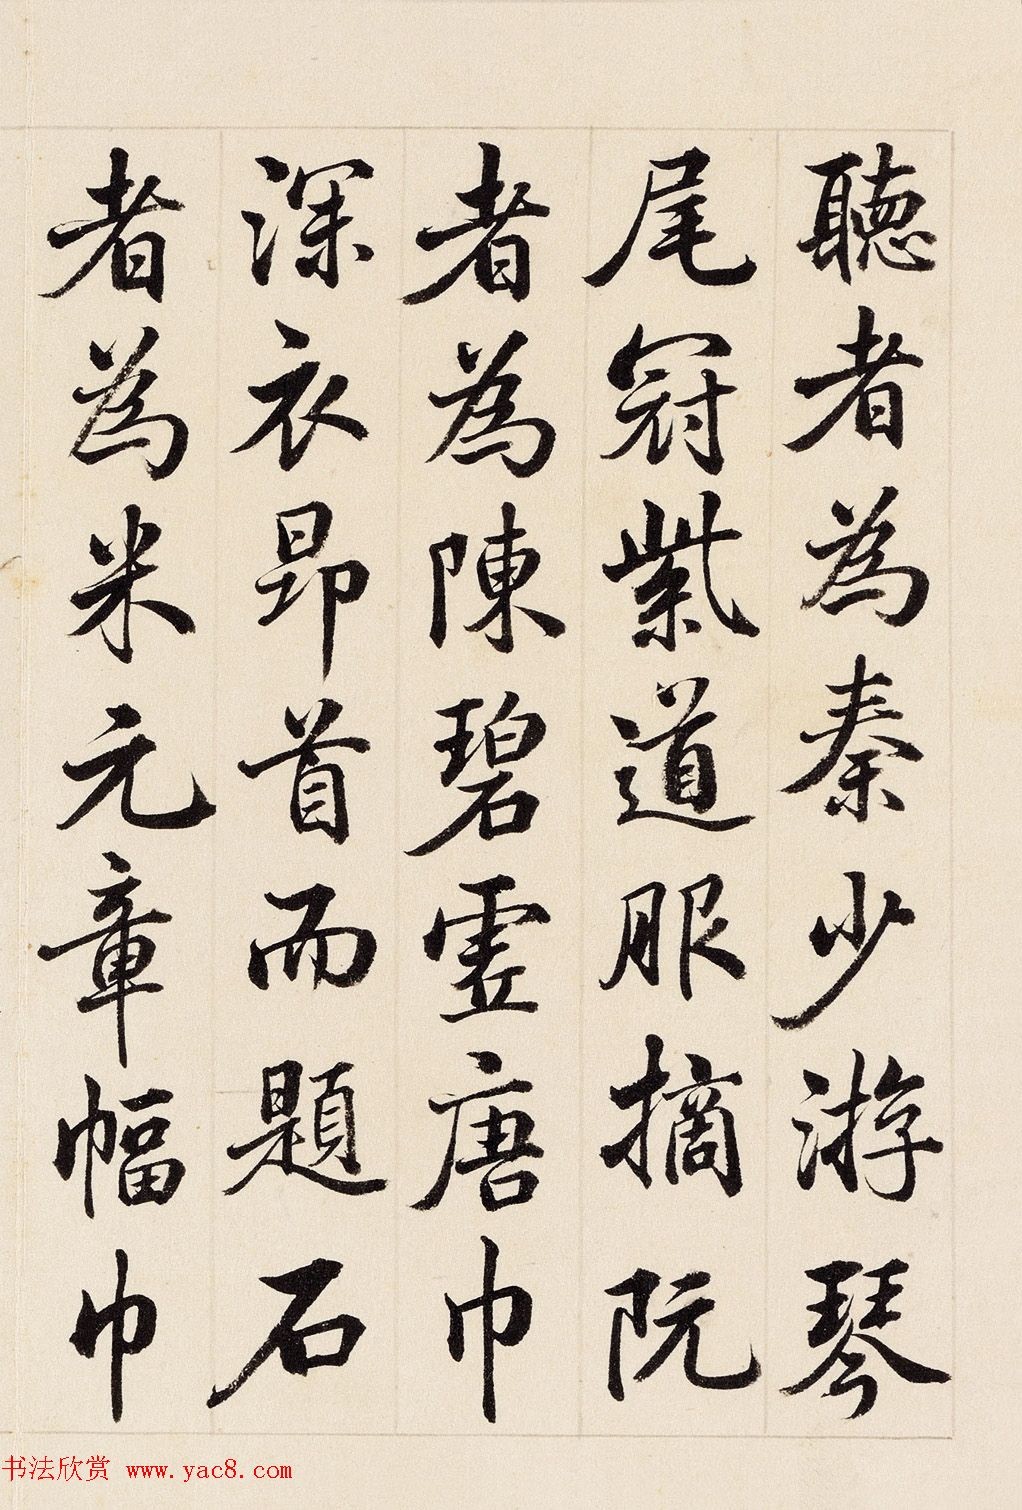 聽者為秦少游琴
尾冠紫道服摘阮
者為陳碧虛唐巾
深衣昂首而題石
者為米元章幅巾
书法欣赏 www.yac8.com